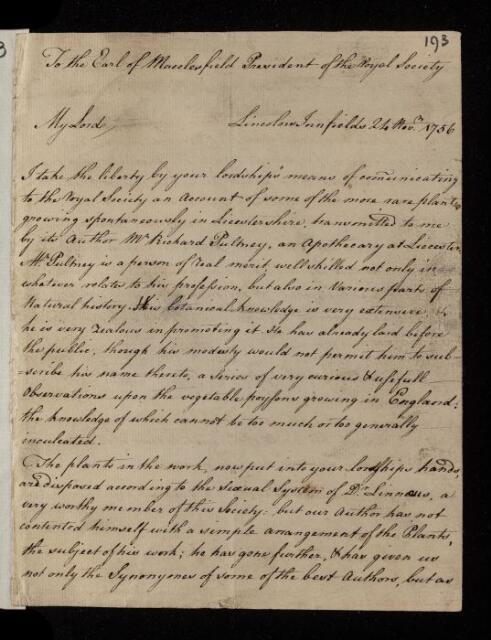 193
To the Earl of Macclesfield President of the Royal Society
My Lord,
Lincolns Innfields 24 Nov.r 1756
I take the liberty by your lordships means of com̅unicating
to the Royal Society an Account of some of the more rare plants
growing spontaneously in Licestershire, transmitted to me
by its Author Mr Richard Pultney, an Apothecary at Leicester.
Mr Pultney is a person of real merit, well skilled not only in
whatever relates to his profession, but also in various parts of
Natural history. His botanical knowledge is very extensive, &
he is very zealous in promoting it. He has already laid before
the public, though his modesty would not permit him to sub-
-scribe his name thereto, a Series of very curious & usefull
Observations upon the vegetable poysons growing in England:
the knowledge of which cannot be too much or too generally
inculcated.
The plants in the work, now put into your lordships hands,
are disposed according to the sexual System of Dr. Linnæus, a
very worthy member of this Society: but our Author has not
contented himself with a simple arangement of the Plants,
the subject of his work; he has gone further, & has given us
not only the Synonymes of some of the best Authors, but as